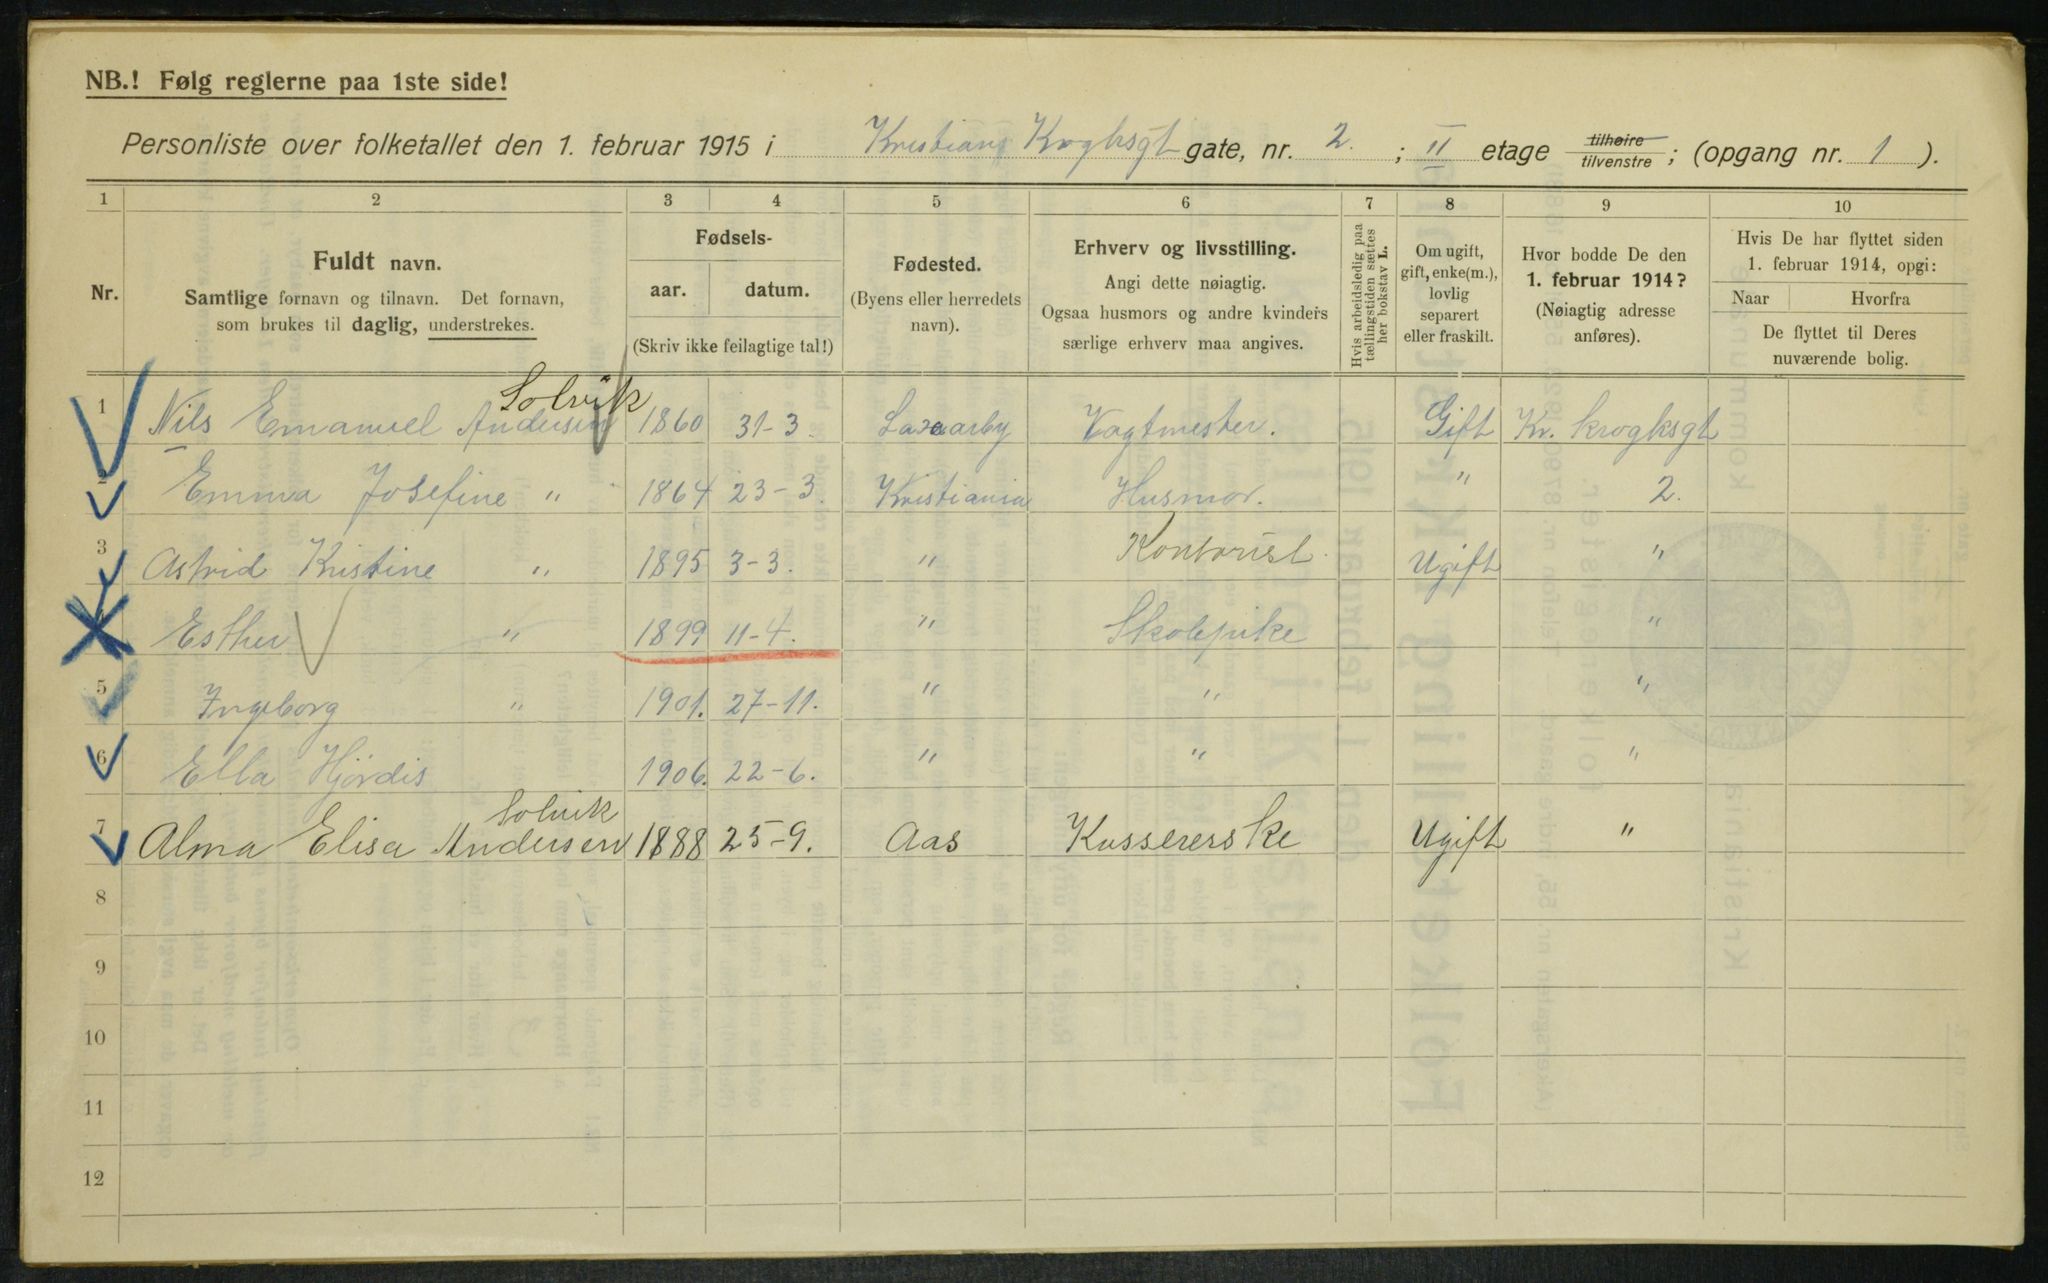 NB.! Følg reglerne paa 1ste side!
Personliste over folketallet den 1. februar 1915 i Kristians Kroghsgt gate, nr. 2. ; II etage tilhøire tilvenstre ; (opgang nr. 1 ).
1 2 3 4 5 6 7 8 9 10
Nr.
Fuldt navn.
Samtlige fornavn og tilnavn. Det fornavn,
som brukes til daglig, understrekes.
Fødsels-
aar. datum.
(Skriv ikke feilagtige tal!)
Fødested.
(Byens eller herredets
navn).
Erhverv og livsstilling.
Angi dette nøiagtig.
Ogsaa husmors og andre kvinders
særlige erhverv maa angives.
Hvis arbeidsledig paa
tællingstiden sættes
her bokstav L.
Om ugift,
gift, enke(m.),
lovlig
separert
eller fraskilt.
Hvor bodde De den
1. februar 1914?
(Nøiagtig adresse
anføres).
Hvis De har flyttet siden
1. februar 1914, opgi:
Naar Hvorfra
De flyttet til Deres
nuværende bolig.
Solvik
1 Nils Emanuel Andersen 1860 31-3. Vagtmester. Gift Kr. Kroghsgt
2 Emma Josefine " 1864 23-3. Kristiania Husmor. " 2.
3 Astrid Kristine " 1895 3-3. " Kontorist. Ugift "
4 Esther " 1899 11-4. " Skolepike "
5 Ingeborg " 1901. 27-11. " " "
6 Ella Hjördis 1906. 22-6. " " "
Solvik
7 Alma Elisa Andersen 1888 25-9. Aas Kassererske Ugift "
8
9
10
11
12